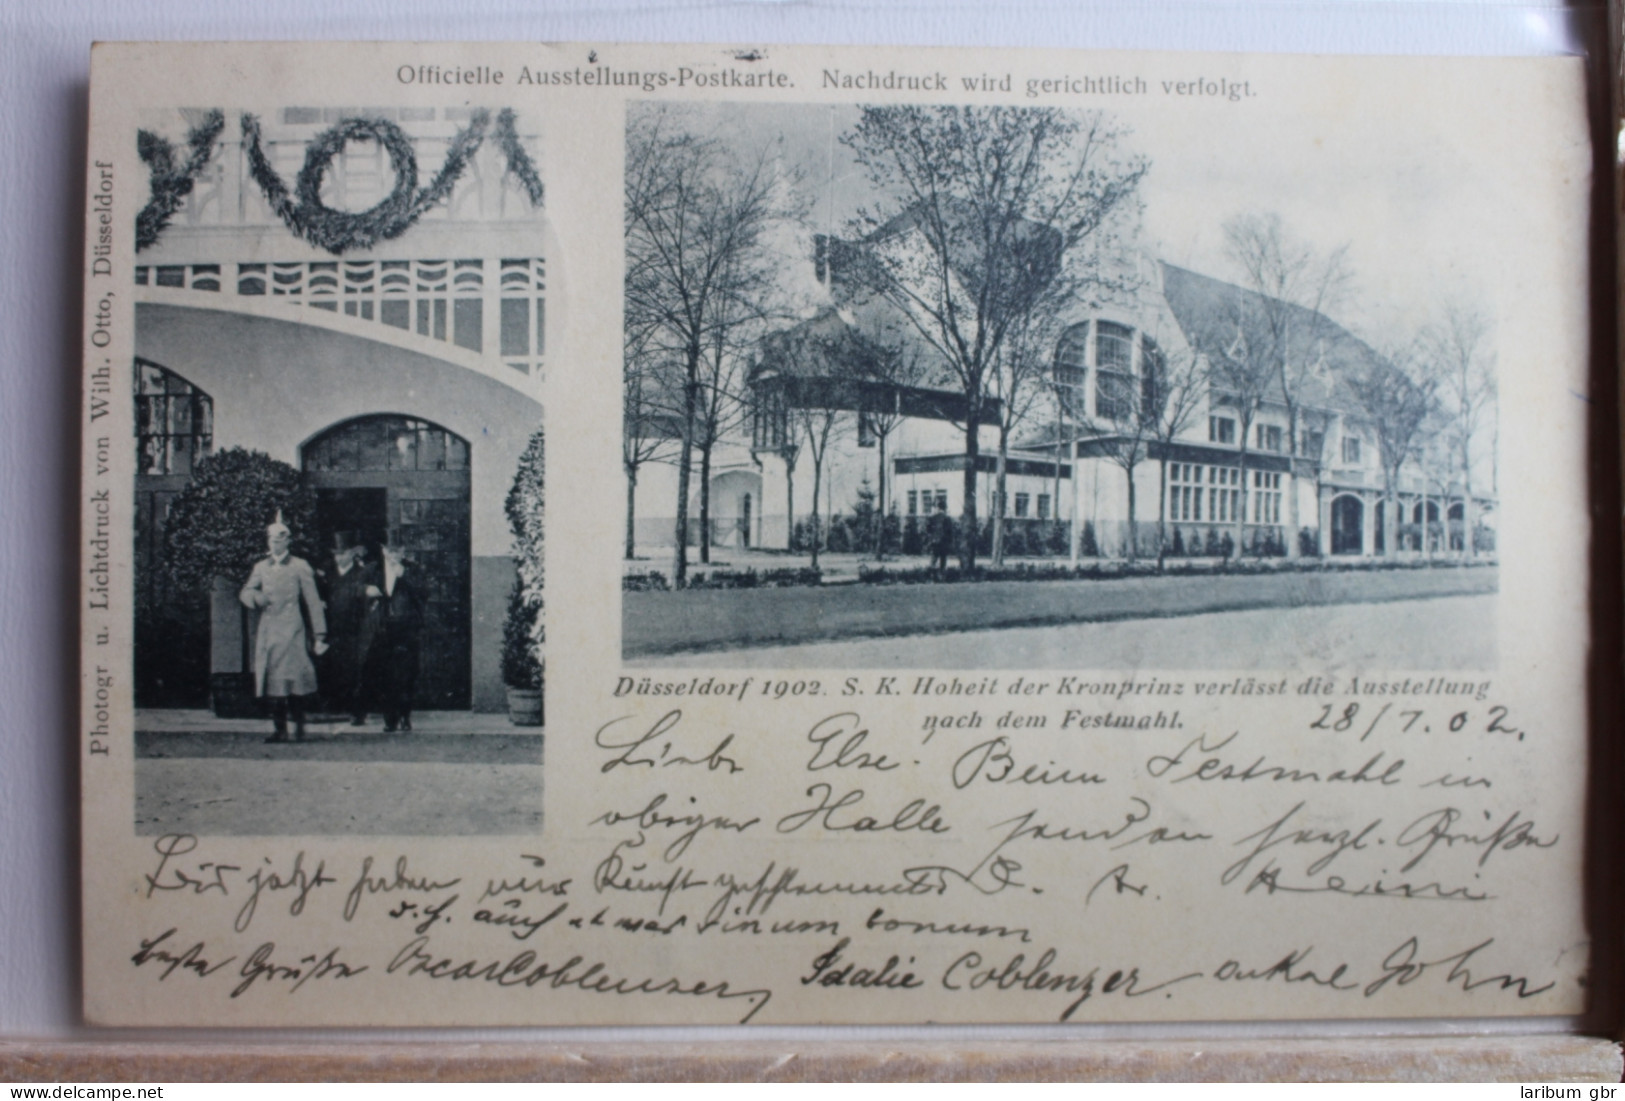 Officielle Ausstellungs-Postkarte. Nachdruck wird gerichtlich verfolgt.
Photogr u. Lichtdruck von Wilh. Otto, Düsseldorf
Düsseldorf 1902. S. K. Hoheit der Kronprinz verlässt die Ausstellung
nach dem Festmahl.
28/7.02.
Liebe Else! Beim Festmahl in
obiger Halle senden herzl. Grüße
Heini
Bis jetzt haben wir Kunst geschwommen
d. h. auch etwas vinum bonum
beste Grüße Oscar Coblenzer,
Idalie Coblenzer. onkel John
delcampe.net
laribum gbr